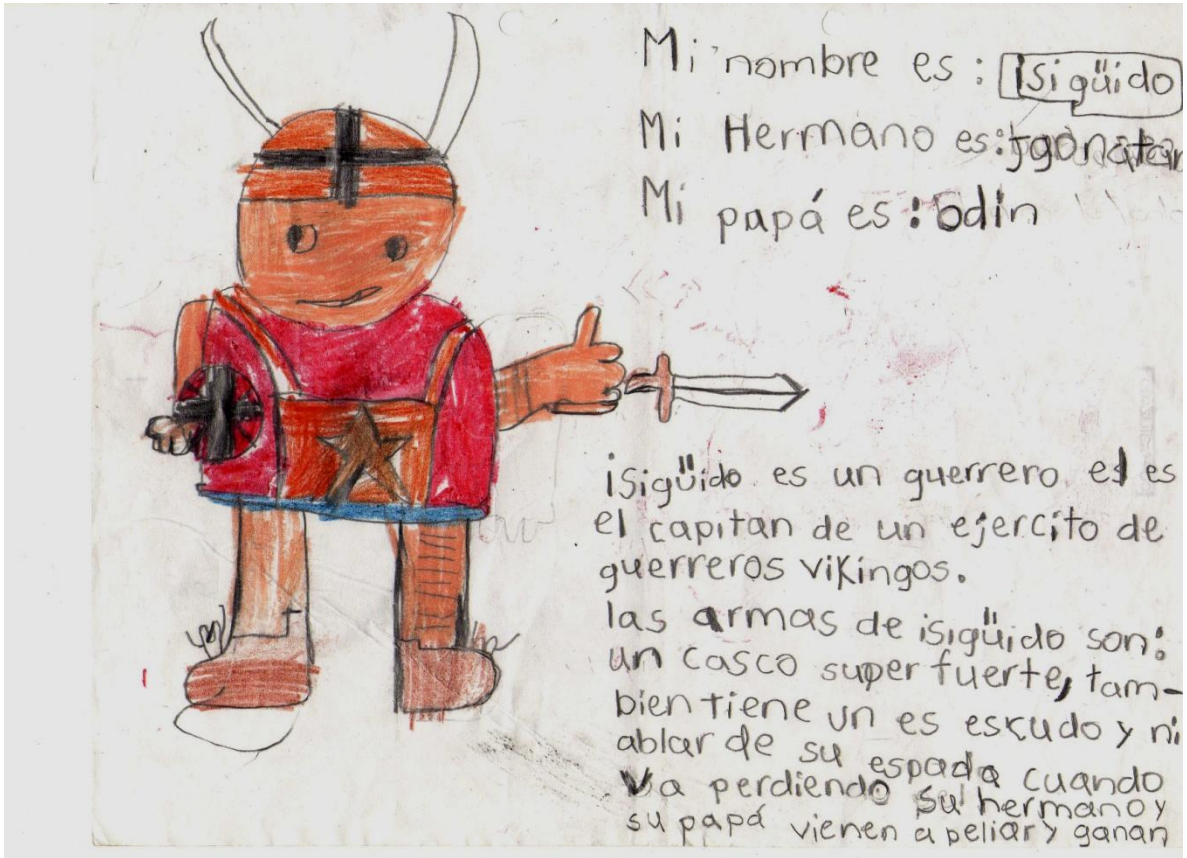 Mi nombre es: isigüido
Mi Hermano es:
Mi papá es: odin
isigüido es un guerrero el es
el capitan de un ejercito de
guerreros vikingos.
las armas de isigüido son:
un casco super fuerte, tam-
bien tiene un es escudo y ni
ablar de su espada cuando
va perdiendo su hermano y
su papá vienen a peliar y ganan